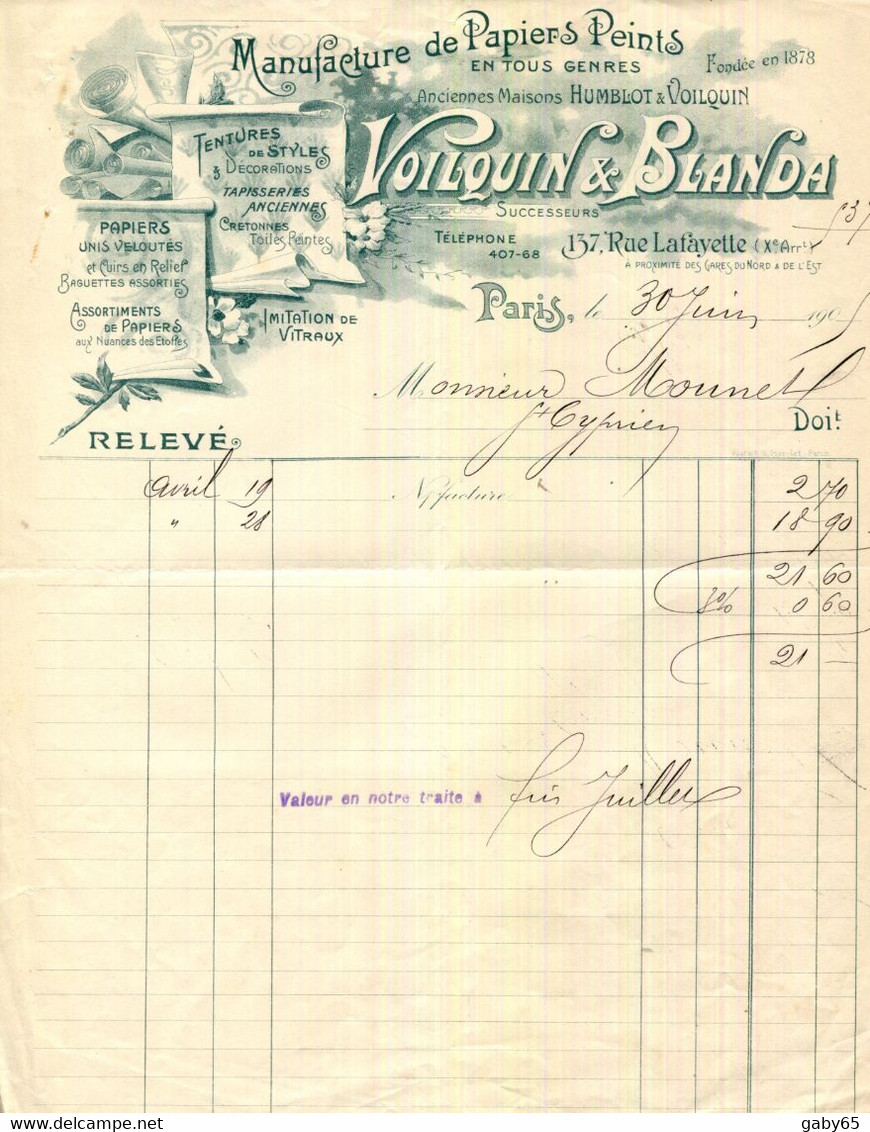 Manufacture de Papiers Peints
EN TOUS GENRES
Fondée en 1878
Anciennes Maisons HUMBLOT & VOILQUIN
VOILQUIN & BLANDA
SUCCESSEURS
TÉLÉPHONE
407-68
137, Rue Lafayette (Xe Arrt)
A PROXIMITÉ DES GARES DU NORD & DE L'EST
TENTURES
DE STYLES
& DÉCORATIONS
TAPISSERIES
ANCIENNES
CRETONNES
Toiles Peintes
PAPIERS
UNIS VELOUTÉS
et Cuirs en Relief
BAGUETTES ASSORTIES
ASSORTIMENTS
DE PAPIERS
aux Nuances des Etoffes
IMITATION DE
VITRAUX
Paris, le 30 Juin 190
Monsieur Mounet
St Cyprien
Doit
RELEVÉ
Avril 19 N/facture 2 70
" 28 18 90
21 60
3% 0 60
21 —
Valeur en notre traite à fin Juillet
gaby65